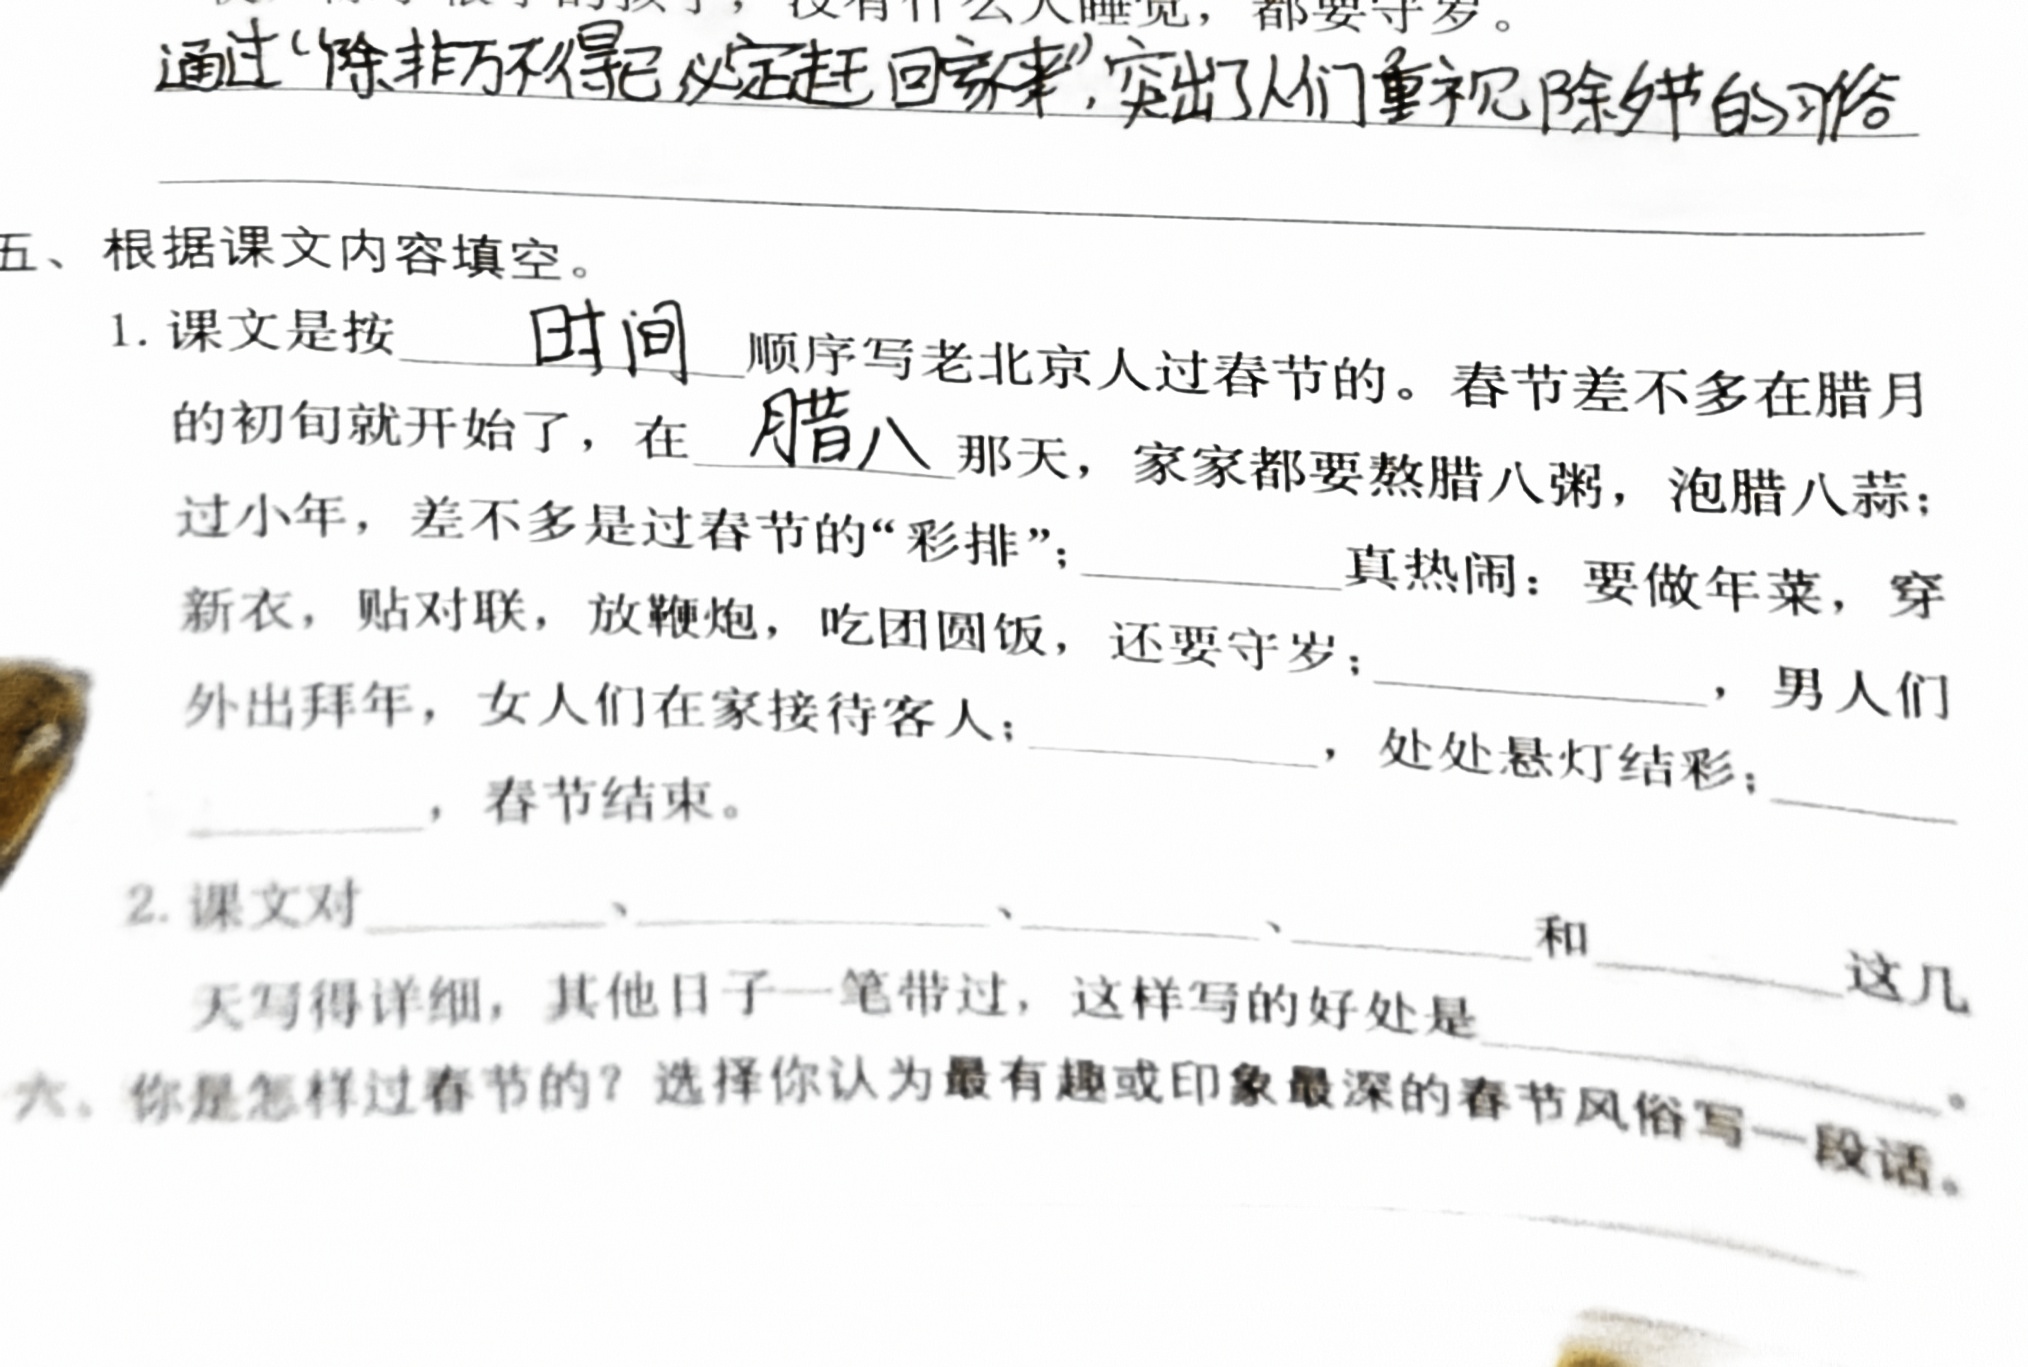 没有什么人睡觉，都要守岁。
通过“除非万不得已必定赶回家来”，突出了人们重视除夕节的习俗
五、根据课文内容填空。
1. 课文是按 时间 顺序写老北京人过春节的。春节差不多在腊月
的初旬就开始了，在 腊八 那天，家家都要熬腊八粥，泡腊八蒜；
过小年，差不多是过春节的“彩排”；______真热闹：要做年菜，穿
新衣，贴对联，放鞭炮，吃团圆饭，还要守岁；______，男人们
外出拜年，女人们在家接待客人；______，处处悬灯结彩；______
______，春节结束。
2. 课文对______、______、______、______和______这几
天写得详细，其他日子一笔带过，这样写的好处是______。
六、你是怎样过春节的？选择你认为最有趣或印象最深的春节风俗写一段话。